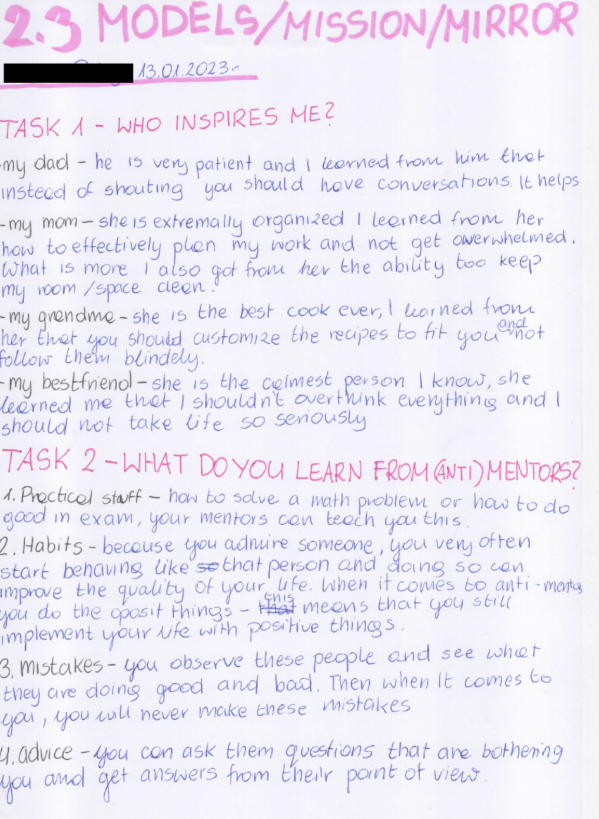 2.3 MODELS/MISSION/MIRROR
13.01.2023r
TASK 1 - WHO INSPIRES ME?
-my dad - he is very patient and I learned from him that
instead of shouting you should have conversations. It helps
-my mom - she is extremally organized I learned from her
how to effectively plan my work and not get overwhelmed.
What is more I also got from her the ability too keep
my room/space clean.
-my grandma - she is the best cook ever, I learned from
her that you should customize the recipes to fit you and not
follow them blindely.
-my bestfriend - she is the calmest person I know, she
learned me that I shouldn't overthink everything and I
should not take life so seriously
TASK 2 - WHAT DO YOU LEARN FROM (ANTI) MENTORS?
1. Practical stuff - how to solve a math problem or how to do
good in exam, your mentors can teach you this.
2. Habits - because you admire someone, you very often
start behaving like so that person and doing so can
improve the quality of your life. When it comes to anti-mentors
you do the oposit things - that this means that you still
implement your life with positive things.
3. mistakes - you observe these people and see what
they are doing good and bad. Then when it comes to
you, you will never make these mistakes
4. advice - you can ask them questions that are bothering
you and get answers from their point of view.